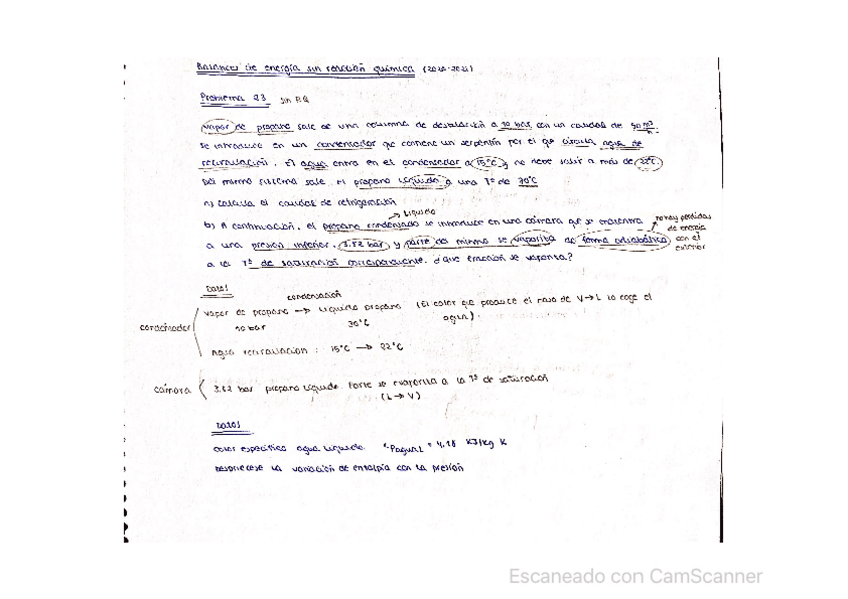 Balances de energía sin reacción química (2020-2021)
Problema 23 sin RQ
Vapor de propano sale de una columna de destilación a 10 bar, con un caudal de
se introduce en un condensador que contiene un serpentín por el que circula agua de
recirculación. El agua entra en el condensador a 15°C y no debe salir a más de 22°C.
Del mismo sistema sale el propano líquido a una Tª de 30°C
a) Calcula el caudal de refrigeración
líquido
b) A continuación, el propano condensado se introduce en una cámara que se encuentra
no hay pérdidas de energía con el exterior
a una presión inferior, bar y parte del mismo se vaporiza de forma adiabática
a la Tª de saturación correspondiente. ¿Qué fracción se vaporiza?
Datos
condensación
condensador
vapor de propano → líquido propano (El calor que produce el paso de V→L lo coge el
10 bar 30°C agua).
Agua recirculación : 15°C → 22°C
cámara
bar propano líquido Parte se evaporiza a la Tª de saturación
(L→V)
Datos
calor específico agua líquida = 4.18 KJ/Kg K
Desprecese la variación de entalpía con la presión
Escaneado con CamScanner